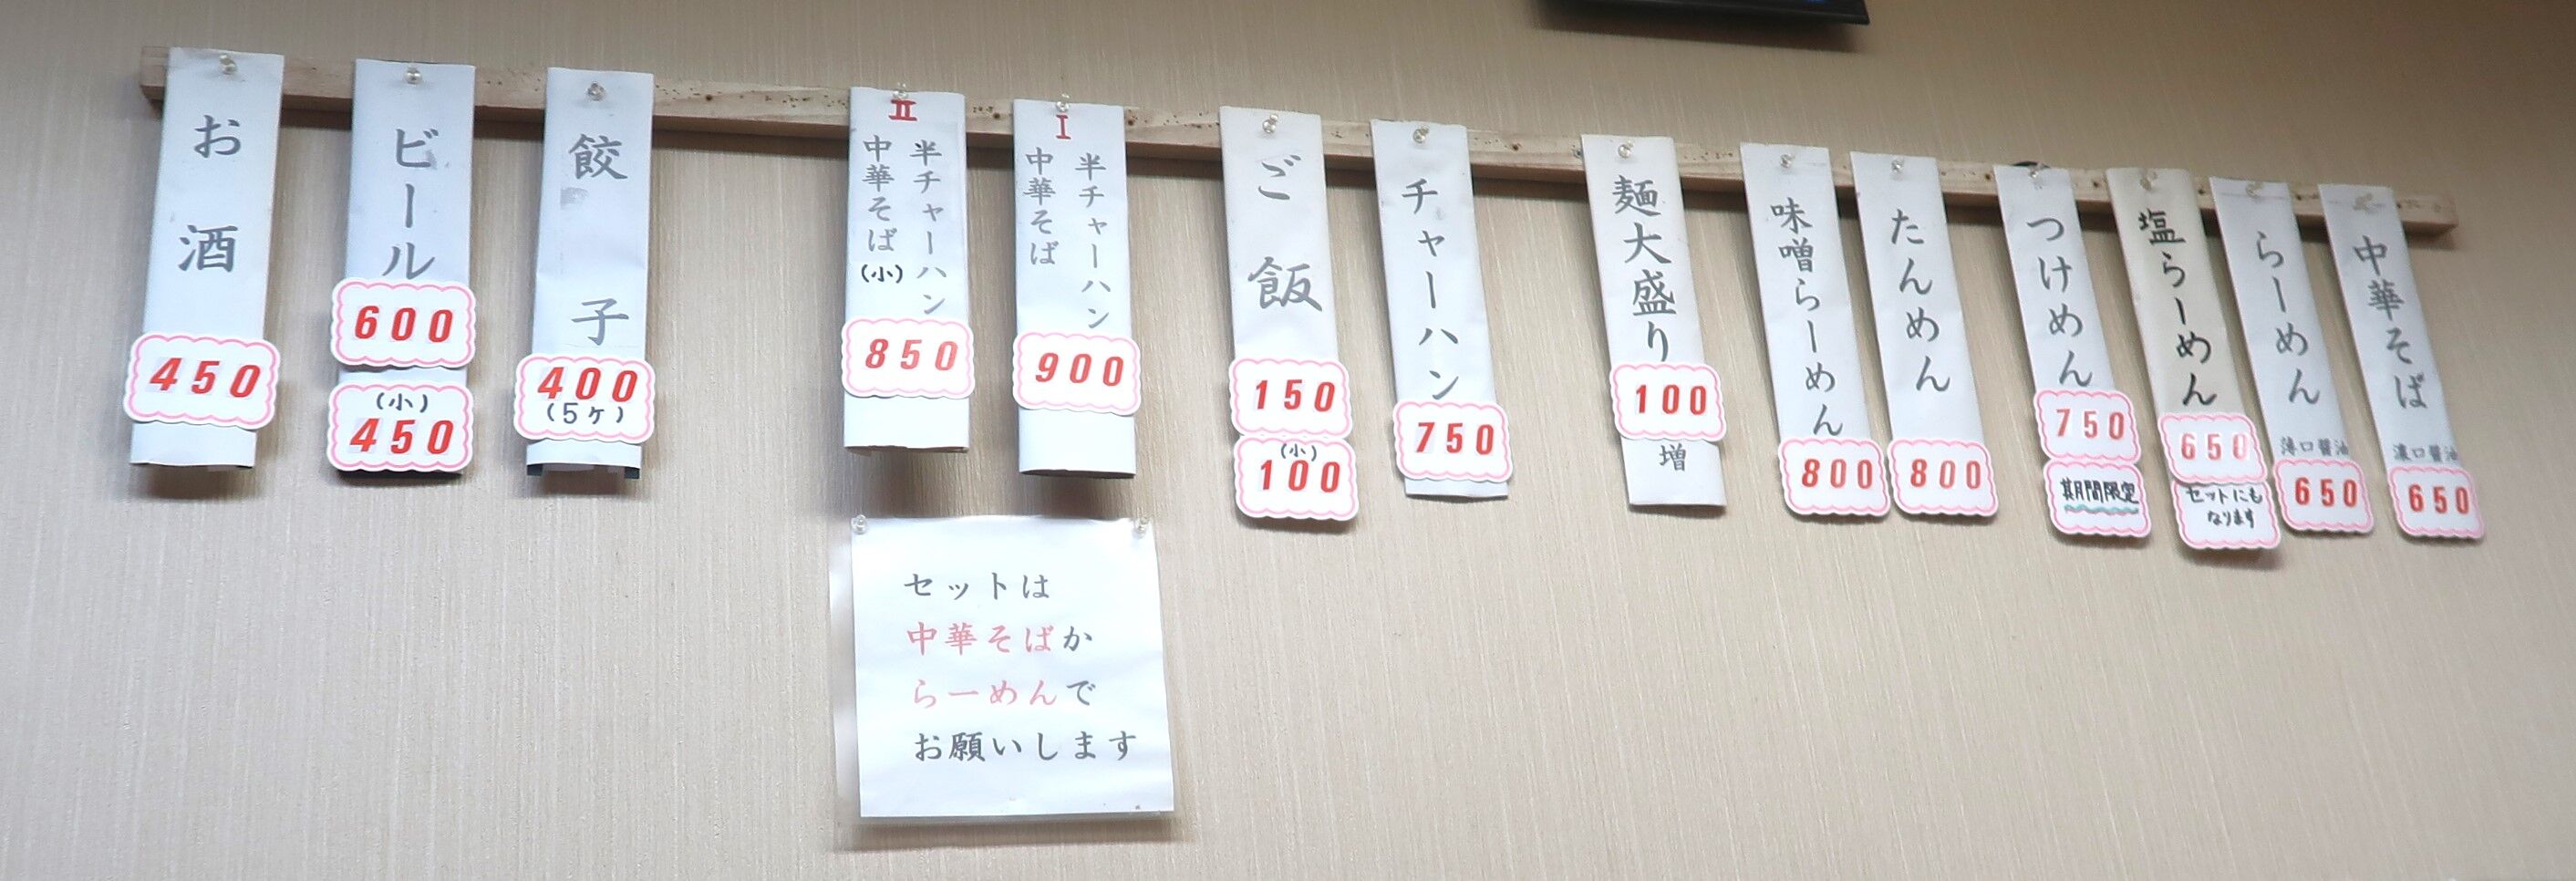 中華そば
濃口醤油
650
らーめん
薄口醤油
650
塩らーめん
650
セットにも
なります
つけめん
750
期間限定
たんめん
800
味噌らーめん
800
麺大盛り
100
増
チャーハン
750
ご飯
150
(小)
100
I
半チャーハン
中華そば
900
II
半チャーハン
中華そば(小)
850
餃子
400
(5ヶ)
ビール
600
(小)
450
お酒
450
セットは
中華そばか
らーめんで
お願いします